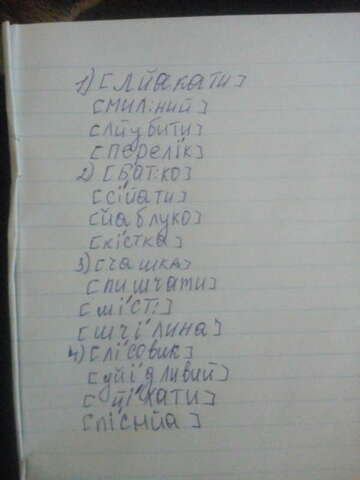 1) [лйакати]
[мил:ний]
[лйубити]
[перелік]
2) [бат:ко]
[сійати]
[йаблуко]
[кістка]
3) [чашка]
[пишчати]
[міст:]
[шчілина]
4) [лісовик]
[уйідливий]
[ціkати]
[піснйа]